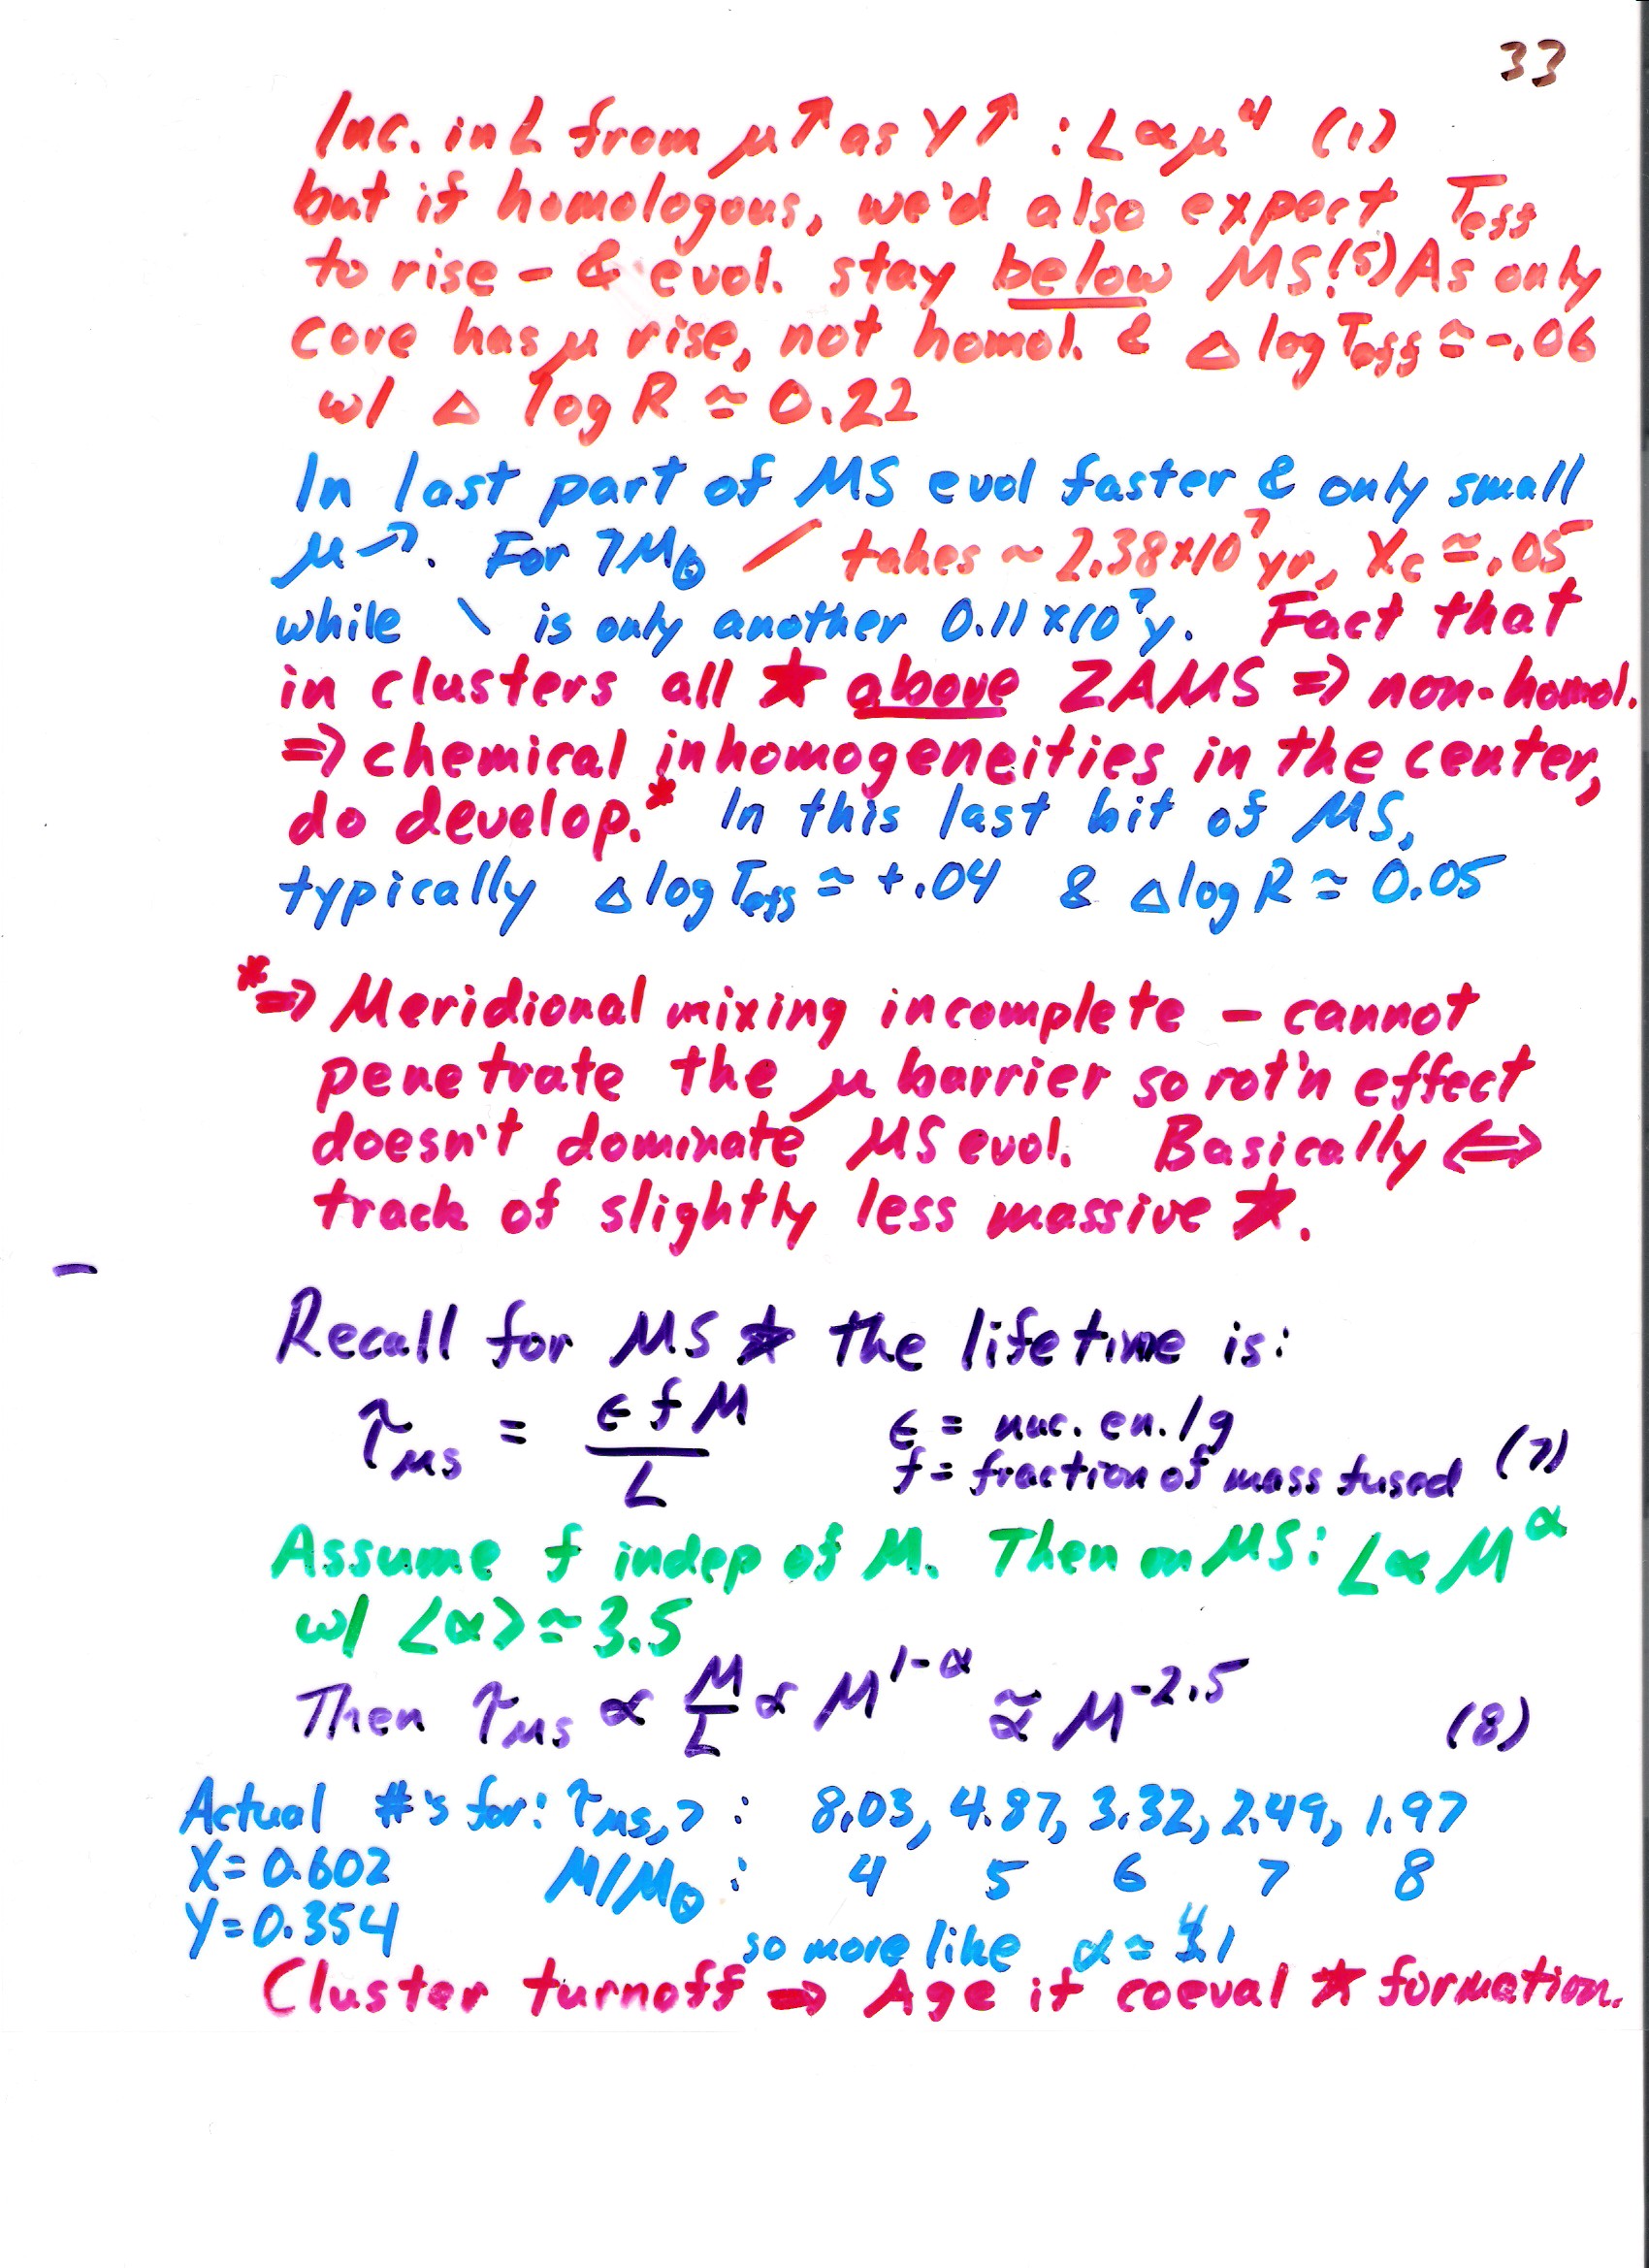 33
Inc. in L from μ↑ as Y↑ : L∝μ⁴ (1)
but if homologous, we'd also expect Teff
to rise - & evol. stay below MS!(5) As only
core has μ rise, not homol. & Δ log Teff ≃ -.06
w/ Δ log R ≃ 0.22
In last part of MS evol faster & only small
μ↗. For 7M⊙ / takes ~ 2.38×10⁷ yr, Xc ≃ .05
while \ is only another 0.11×10⁷ y. Fact that
in clusters all ★ above ZAMS ⇒ non-homol.
⇒ chemical inhomogeneities in the center,
do develop.* In this last bit of MS,
typically Δ log Teff ≃ +.04 & Δ log R ≃ 0.05
*⇒ Meridional mixing incomplete - cannot
penetrate the μ barrier so rot'n effect
doesn't dominate MS evol. Basically ⇔
track of slightly less massive ★.
Recall for MS ★ the lifetime is:
τMS = ϵfM/L ϵ = nuc. en./g
f = fraction of mass fused (7)
Assume f indep of M. Then on MS: L∝M^α
w/ <α> ≃ 3.5
Then τMS ∝ M/L ∝ M^(1-α) ≈∝ M^-2.5 (8)
Actual #'s for: τMS,7 : 8.03, 4.87, 3.32, 2.49, 1.97
X=0.602 M/M⊙ : 4 5 6 7 8
Y=0.354
so more like α ≃ 3.1
Cluster turnoff ⇒ Age if coeval ★ formation.